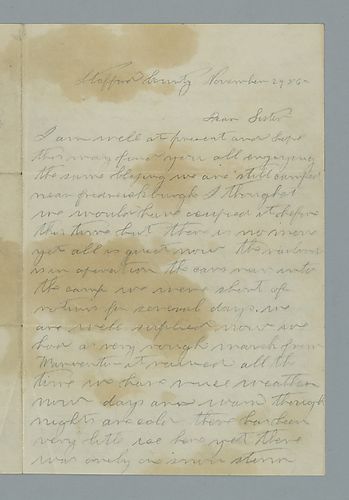 Stafford County November 29 86
Dear Sister
I am well at present and hope
this may find you all enjoying
the same blessing we are still camped
near fredricksburgh I thought
we would have occupied it before
this time but there is no move
yet all is quiet now the railroad
is in operation the cars run into
the camp we were short of
rations for several days we
are well suplied now we
had a very rough march from
it rained all the
time we have nice weather
now days are warm though
nights are cold there has been
very little ice here yet there
was only one snow storm